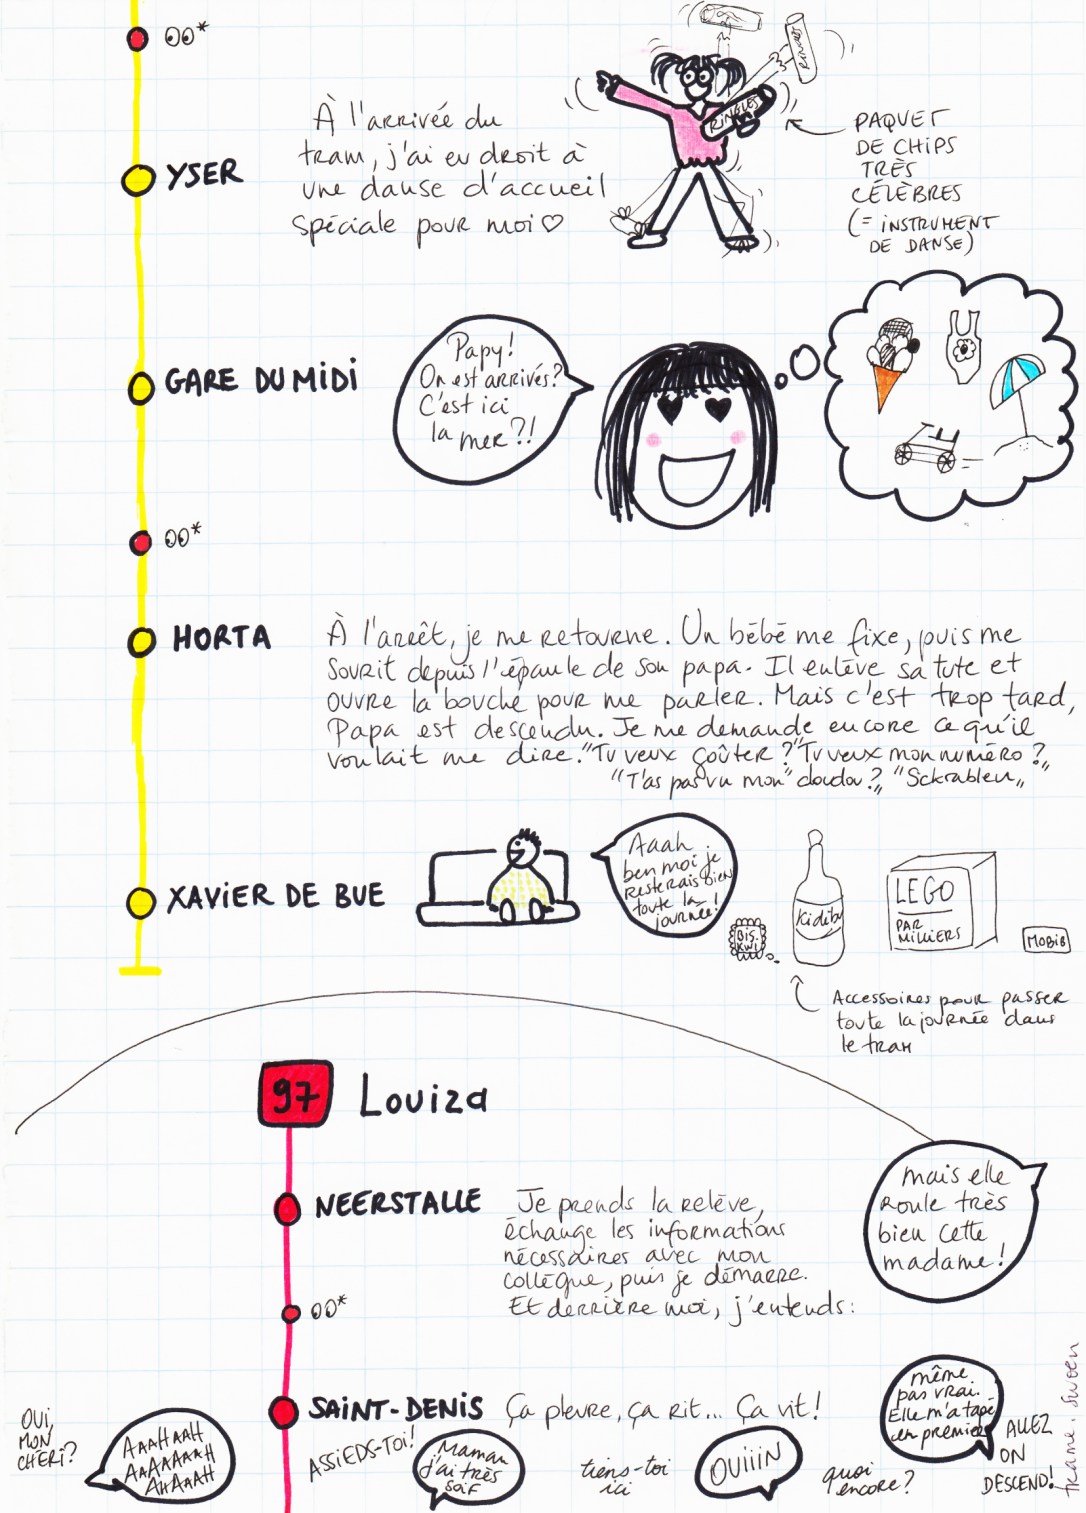 00*
À l'arrivée du
tram, j'ai eu droit à
une danse d'accueil
spéciale pour moi♡
RINGLES
RINGLES
PAQUET
DE CHIPS
TRÈS
CÉLÈBRES
(= INSTRUMENT
DE DANSE)
YSER
GARE DU MIDI
Papy!
On est arrivés?
C'est ici
la mer?!
00*
HORTA
À l'arrêt, je me retourne. Un bébé me fixe, puis me
sourit depuis l'épaule de son papa. Il enlève sa tute et
ouvre la bouche pour me parler. Mais c'est trop tard,
Papa est descendu. Je me demande encore ce qu'il
voulait me dire. "Tu veux goûter?" "Tu veux mon numéro?"
"T'as pas vu mon doudou?" "Sckrableu"
XAVIER DE BUE
Aaah
ben moi je
resterais bien
toute la
journée!
BIS
KWI
Kidibu
LEGO
PAR
MILLIERS
MOBIB
Accessoires pour passer
toute la journée dans
le tram
97 Louiza
NEERSTALLE
Je prends la relève,
échange les informations
nécessaires avec mon
collègue, puis je démarre.
Et derrière moi, j'entends:
mais elle
roule très
bien cette
madame!
00*
SAINT-DENIS
Ça pleure, ça rit... Ça vit!
OUI,
MON
CHÉRI?
AAAHAAH
AAAAAAAH
AHAAAH
ASSIEDS-TOI!
Maman
j'ai très
soif
tiens-toi
ici
OUIIIN
quoi
encore?
même
pas vrai.
Elle m'a tapé
en premier
ALLEZ
ON
DESCEND!